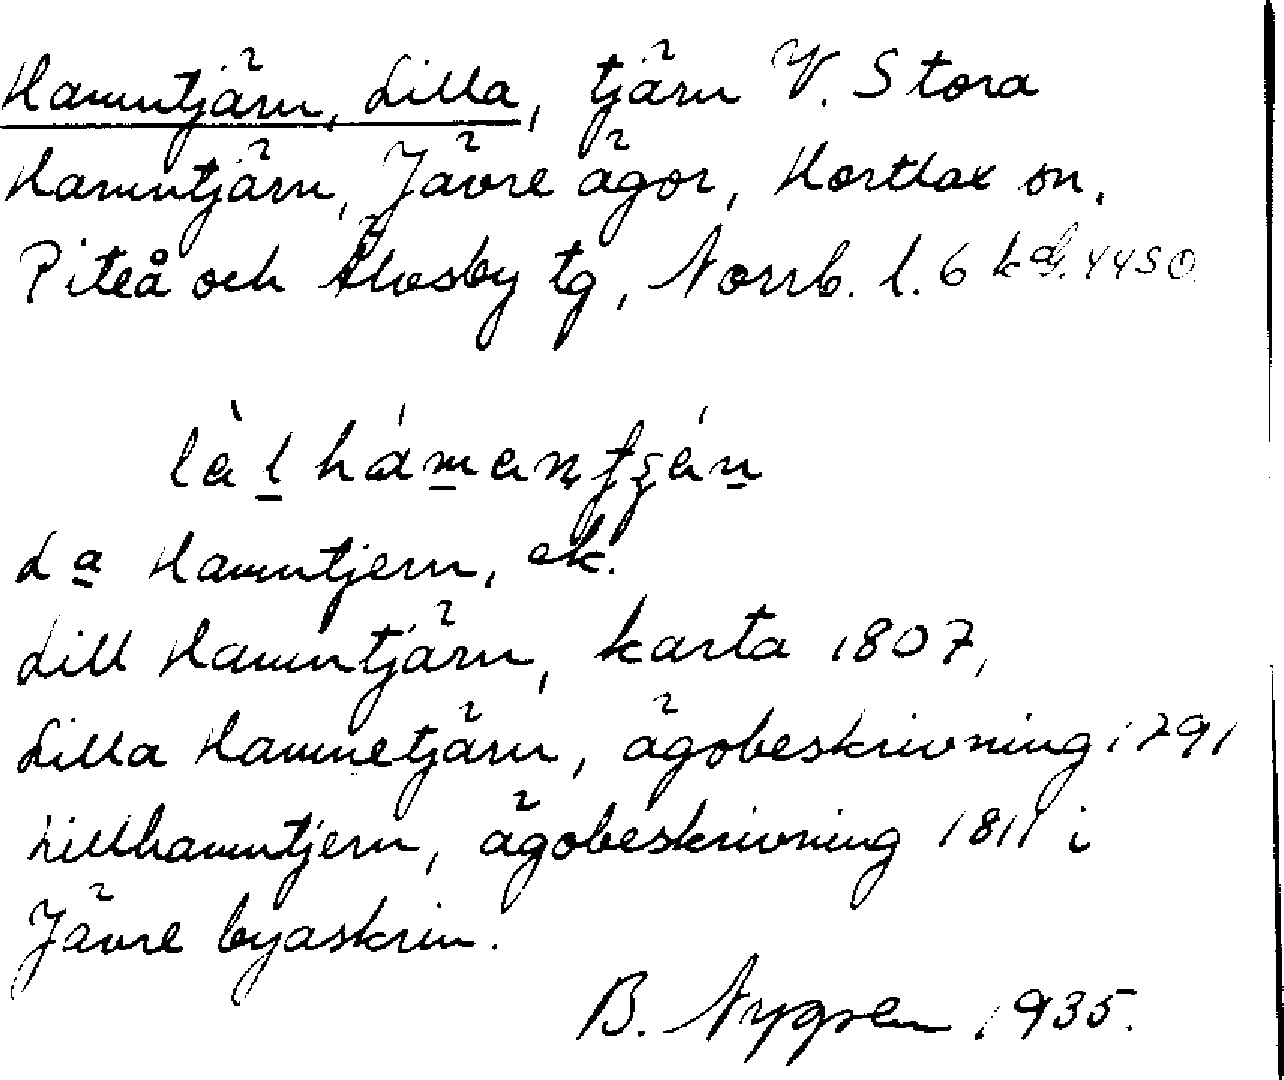 Hamntjärn, Lilla, tjärn V. Stora
Hamntjärn, Jävre ägor, Hortlax sn,
Piteå och Älvsby tg, Norrb. l. 6 kbl. 4450
La Hamntjern, ek.
Lill Hamntjärn, karta 1807,
Lilla Hamnetjärn, ägobeskrivning 1791
Lillhamntjern, ägobeskrivning 1811 i
Jävre byaskrin.
B. Nygren 1935.